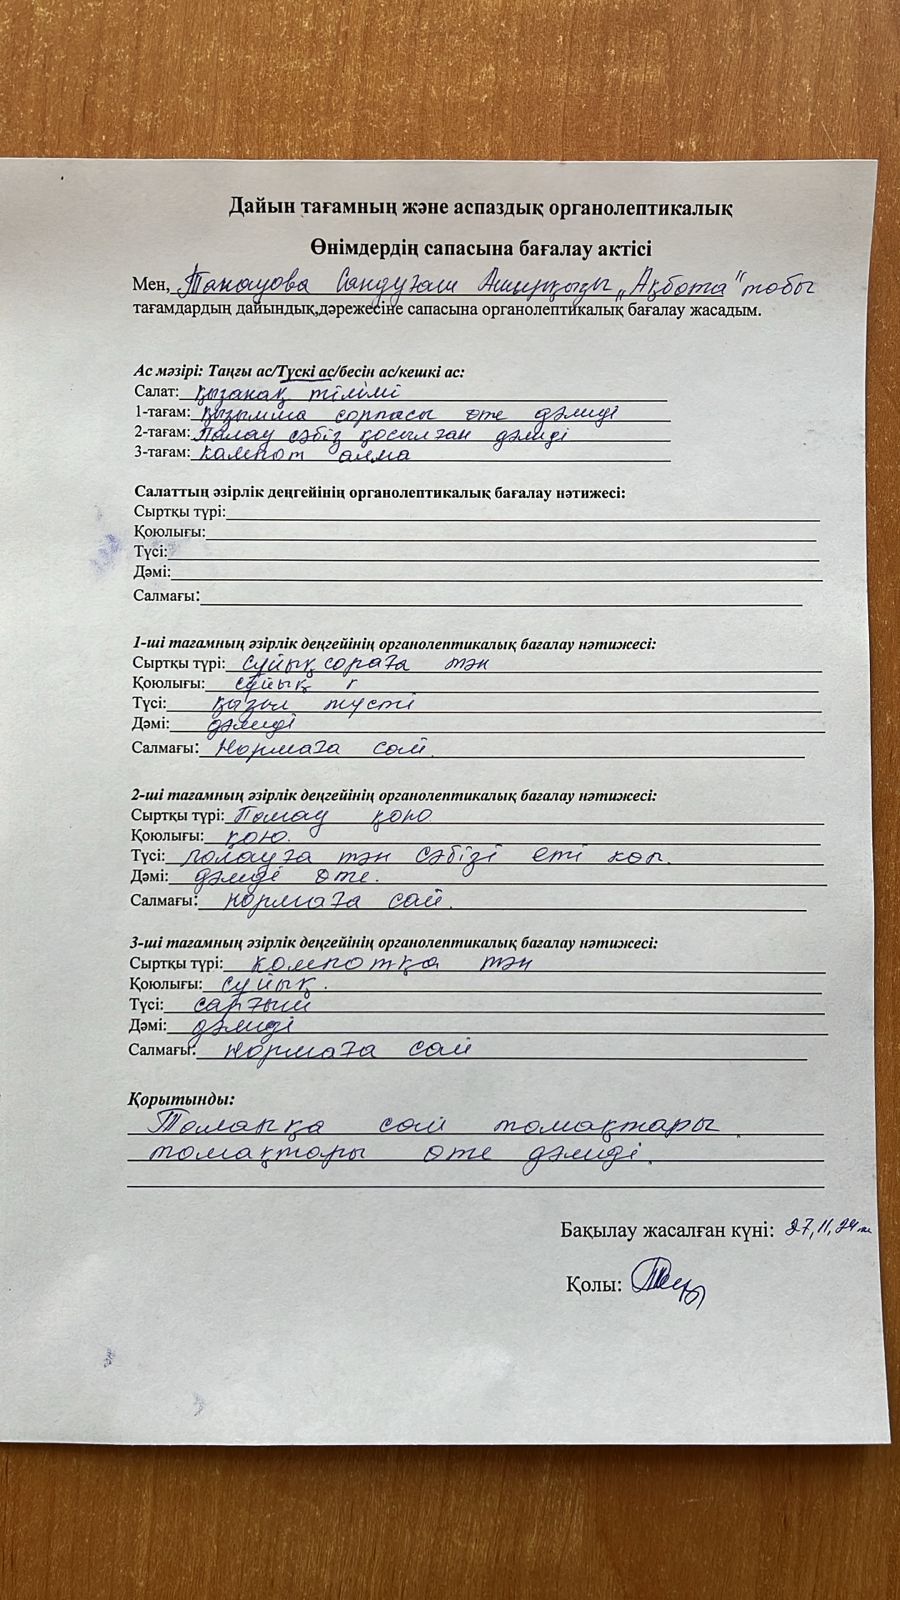 Дайын тағамның және аспаздық органолептикалық
Өнімдердің сапасына бағалау актісі
Мен, Танауова Сандуғаш "Ақбота" тобы
тағамдардың дайындық,дәрежесіне сапасына органолептикалық бағалау жасадым.
Ас мәзірі: Таңғы ас/Түскі ас/бесін ас/кешкі ас:
Салат: қызанақ тілімі
1-тағам: қызылша сорпасы өте дәмді
2-тағам: палау сәбіз қосылған дәмді
3-тағам: компот алма
Салаттың әзірлік деңгейінің органолептикалық бағалау нәтижесі:
Сыртқы түрі:
Қоюлығы:
Түсі:
Дәмі:
Салмағы:
1-ші тағамның әзірлік деңгейінің органолептикалық бағалау нәтижесі:
Сыртқы түрі: сұйық сорпаға тән
Қоюлығы: сұйық
Түсі: қызыл түсті
Дәмі: дәмді
Салмағы: Нормаға сай.
2-ші тағамның әзірлік деңгейінің органолептикалық бағалау нәтижесі:
Сыртқы түрі: Палау қою
Қоюлығы: қою.
Түсі: палауға тән сәбізі еті көп.
Дәмі: дәмді өте.
Салмағы: нормаға сай.
3-ші тағамның әзірлік деңгейінің органолептикалық бағалау нәтижесі:
Сыртқы түрі: компотқа тән
Қоюлығы: сұйық.
Түсі: сарғыш
Дәмі: дәмді
Салмағы: нормаға сай
Қорытынды:
сай томақтары
томақтары өте дәмді.
Бақылау жасалған күні: 27,11,24
Қолы: